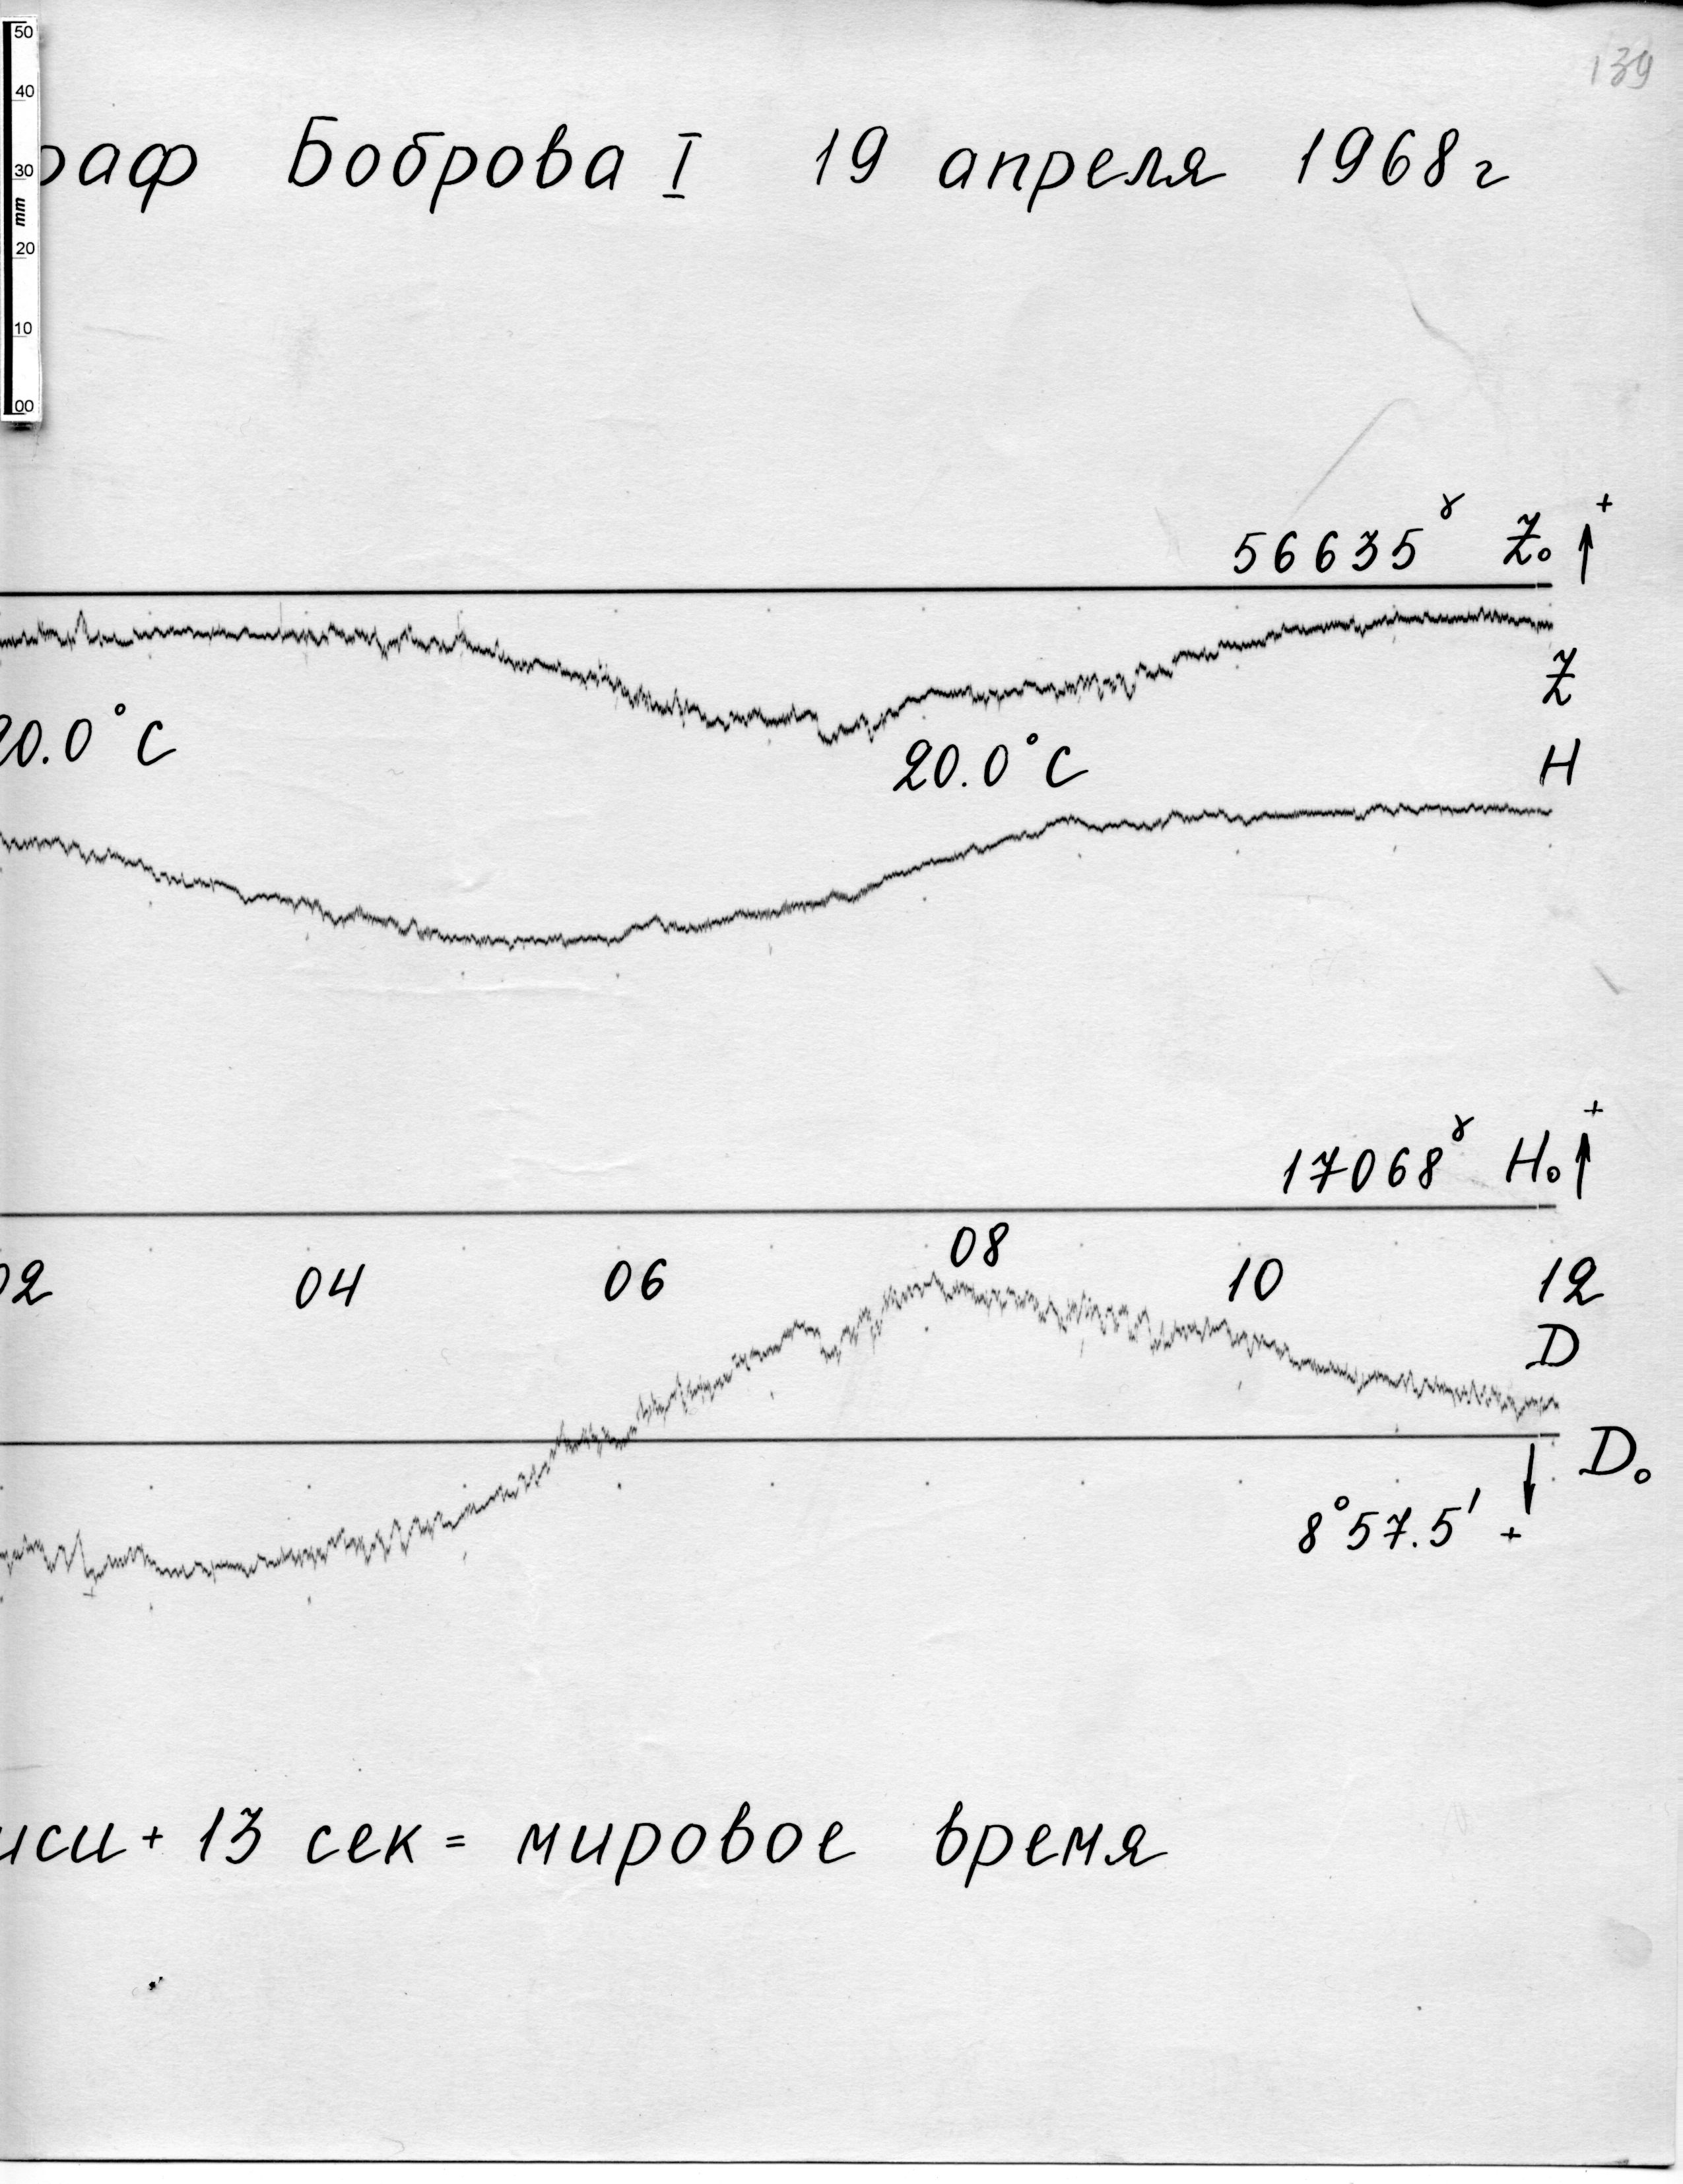 139
50
40
30
mm
20
10
00
раф Боброва I 19 апреля 1968 г
56635 γ Z₀ ↑ +
Z
20.0°C
20.0°C H
17068 γ H₀ ↑ +
02 04 06 08 10 12
D
D₀
8°57.5' ↓ +
иси + 13 сек = мировое время